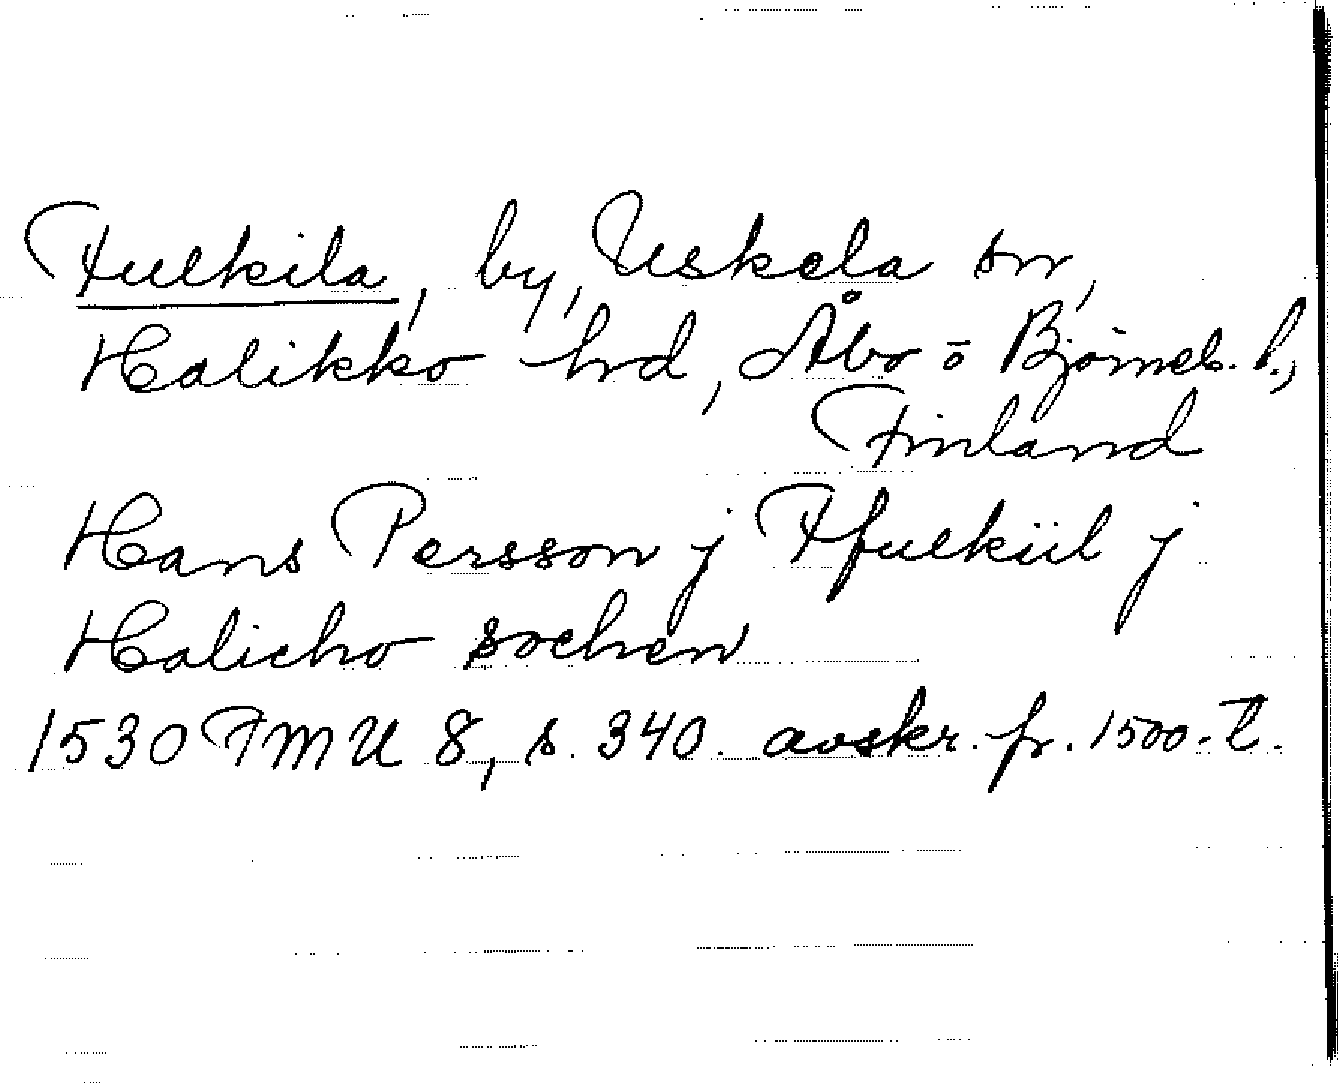 Fulkila, by, Uskela sn,
Halikko hrd, Åbo o Björneb. l.,
Finland
Hans Persson j Ffulkiil j
Halicho sochen
1530 FMU 8, s. 340. avskr. fr. 1500-t.